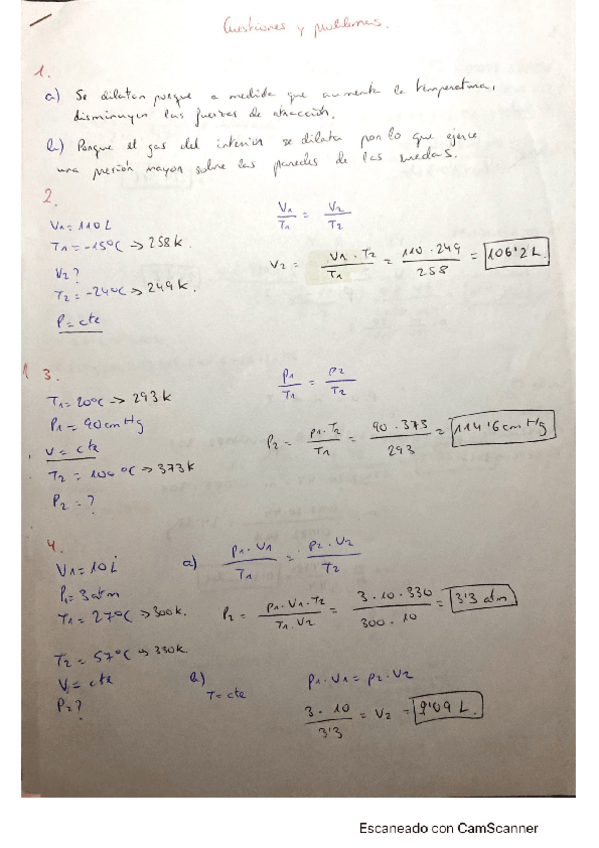 Cuestiones y problemas.
1.
a) Se dilatan porque a medida que aumenta la temperatura,
disminuyen las fuerzas de atracción.
b) Porque el gas del interior se dilata por lo que ejerce
una presión mayor sobre las paredes de las ruedas.
2.
V1 = 110 L
T1 = -15ºC -> 258 K.
V2?
T2 = -24ºC -> 249 K.
P = cte
V1/T1 = V2/T2
V2 = V1 · T2/T1 = 110 · 249/258 = 106'2 L.
3.
T1 = 20ºC -> 293 K
P1 = 90 cm Hg
V = cte
T2 = 100ºC -> 373 K
P2 = ?
P1/T1 = P2/T2
P2 = P1 · T2/T1 = 90 · 373/293 = 114'6 cm Hg
4.
V1 = 10 L
P1 = 3 atm
T1 = 27ºC -> 300 K.
T2 = 57ºC -> 330 K.
V = cte
P2?
a) P1 · V1/T1 = P2 · V2/T2
P2 = P1 · V1 · T2/T1 · V2 = 3 · 10 · 330/300 · 10 = 3'3 atm
b) T = cte
P1 · V1 = P2 · V2
3 · 10/3'3 = V2 = 9'09 L.
Escaneado con CamScanner